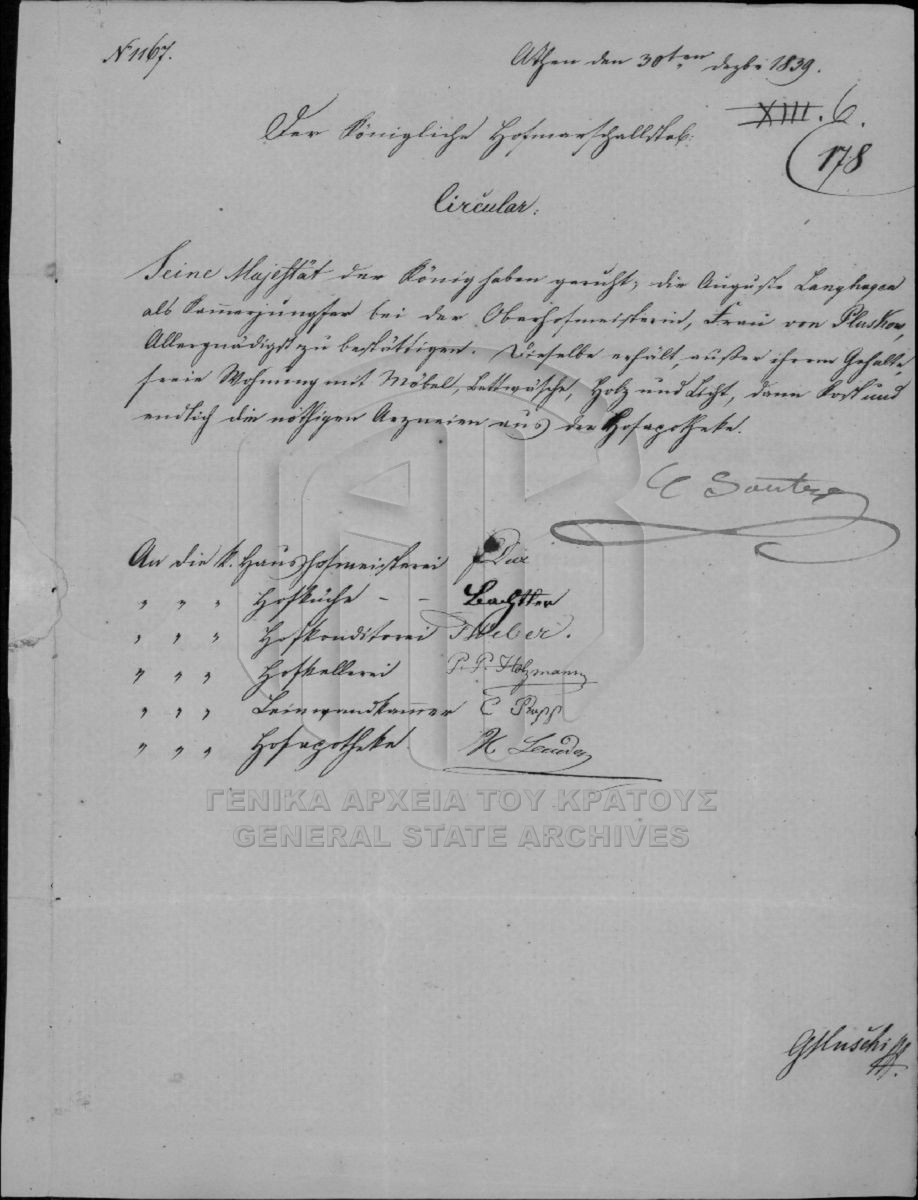 N 1167.
Athen den 30ten dezbr 1839.
XIII. 6.
178
Der Königliche Hofmarschallstab.
Circular.
Seine Majestät der König haben geruht, die Auguste Langhagen
als Kammerjungfer bei der Oberhofmeisterin, Frau von Pluskow,
Allergnädigst zu bestättigen. Dieselbe erhält, außer ihrem Gehalte,
freie Wohnung mit Möbel, Bettwäsche, Holz und Licht, dann Kost und
endlich die nöthigen Arzneien aus der Hofapotheke.
An die k. Haushofmeisterei
" " " Hofküche - -
" " " Hofkonditorei Weber.
" " " Hofkellerei P. P. Holzmann
" " " Leinwandkammer C Rapp
" " " Hofapotheke.
ΓΕΝΙΚΑ ΑΡΧΕΙΑ ΤΟΥ ΚΡΑΤΟΥΣ
GENERAL STATE ARCHIVES